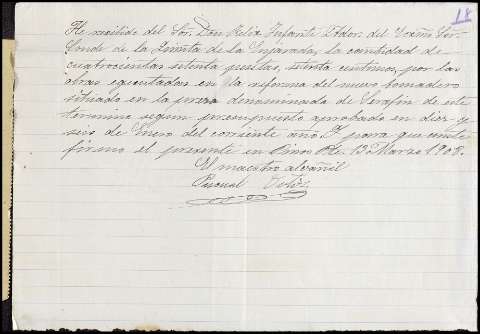 18
He recibido del Sor. Don Felix Infante Admor. del Excmo Sor.
Conde de la Quinta de la Enjarada, la cantidad de
cuatrocientas setenta pesetas, setenta centimos, por las
obras ejecutadas en la reforma del nuevo tomadero
situado en la presa denominada de Serafin de este
termino segun presupuesto aprobado en diez y
seis de Enero del corriente año. Y para que conste
firmo el presente en Pinos Pte. 13 Marzo 1908.
El maestro albañil
Pascual